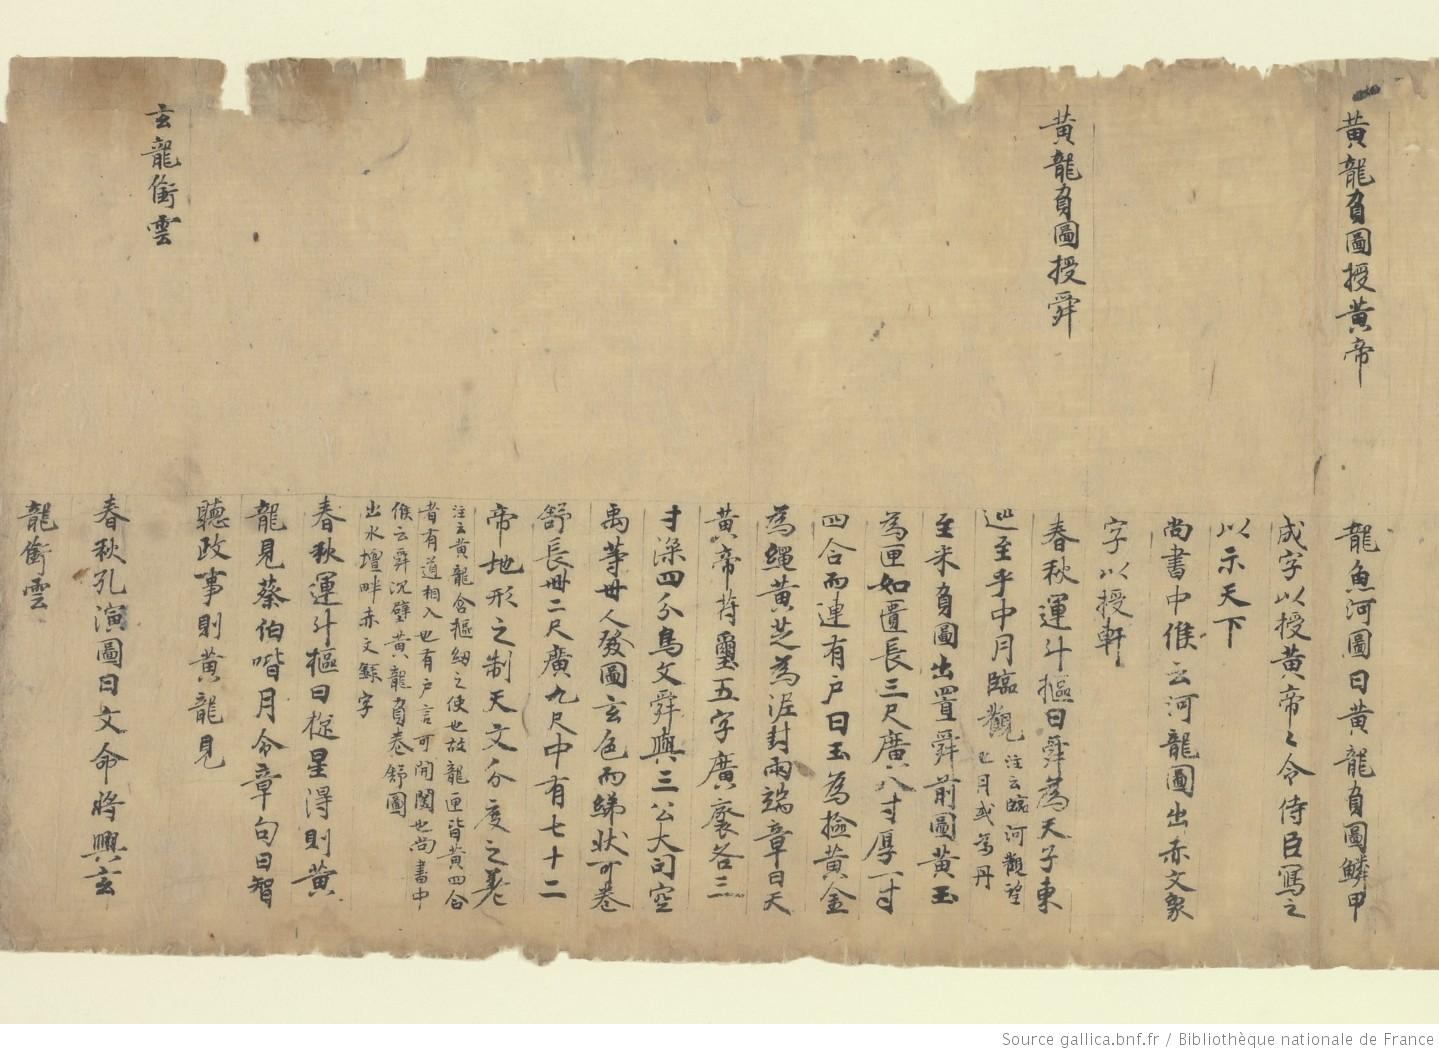 黃龍負圖授黃帝
龍魚河圖曰黃龍負圖鱗甲
成字以授黃帝〻令侍臣寫之
以示天下
尚書中候云河龍圖出赤文象
字以授軒
黃龍負圖授舜
春秋運斗樞曰舜為天子東
巡至乎中月臨觀
注云臨河觀望
也月或為丹
至米負圖出置舜前圖黃玉
為匣如匱長三尺廣八寸厚一寸
四合而連有户白玉為撿黃金
為繩黃芝為泥封兩端章曰天
黃帝苻璽五字廣袤各三
寸深四分鳥文舜與三公大司空
禹等卅人發圖玄色而綈狀可卷
舒長卅二尺廣九尺中有七十二
帝地形之制天文分度之差
注云黃龍含樞紐之使也故龍匣皆黃四合
者有道相入也有户言可開闔也尚書中
候云舜沉璧黃龍負卷舒圖
出水壇畔赤文綠字
春秋運斗樞曰樞星得則黃
龍見蔡伯喈月令章句曰智
聽政事則黃龍見
玄龍銜雲
春秋孔演圖曰文命將興玄
龍銜雲
Source gallica.bnf.fr / Bibliothèque nationale de France